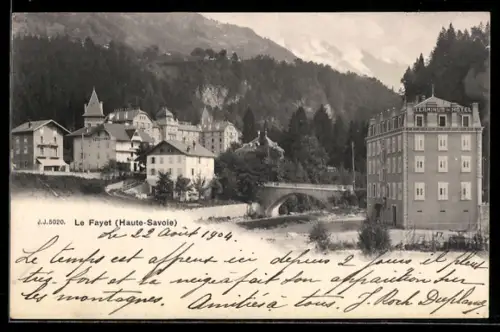 TERMINUS HOTEL
J.J. 5020. Le Fayet (Haute-Savoie)
Le 22 Août 1904.
Le temps est affreux ici depuis 2 jours il pleut
très fort et la neige fait son apparition sur
les montagnes.
Amitiés à tous. J. Roch